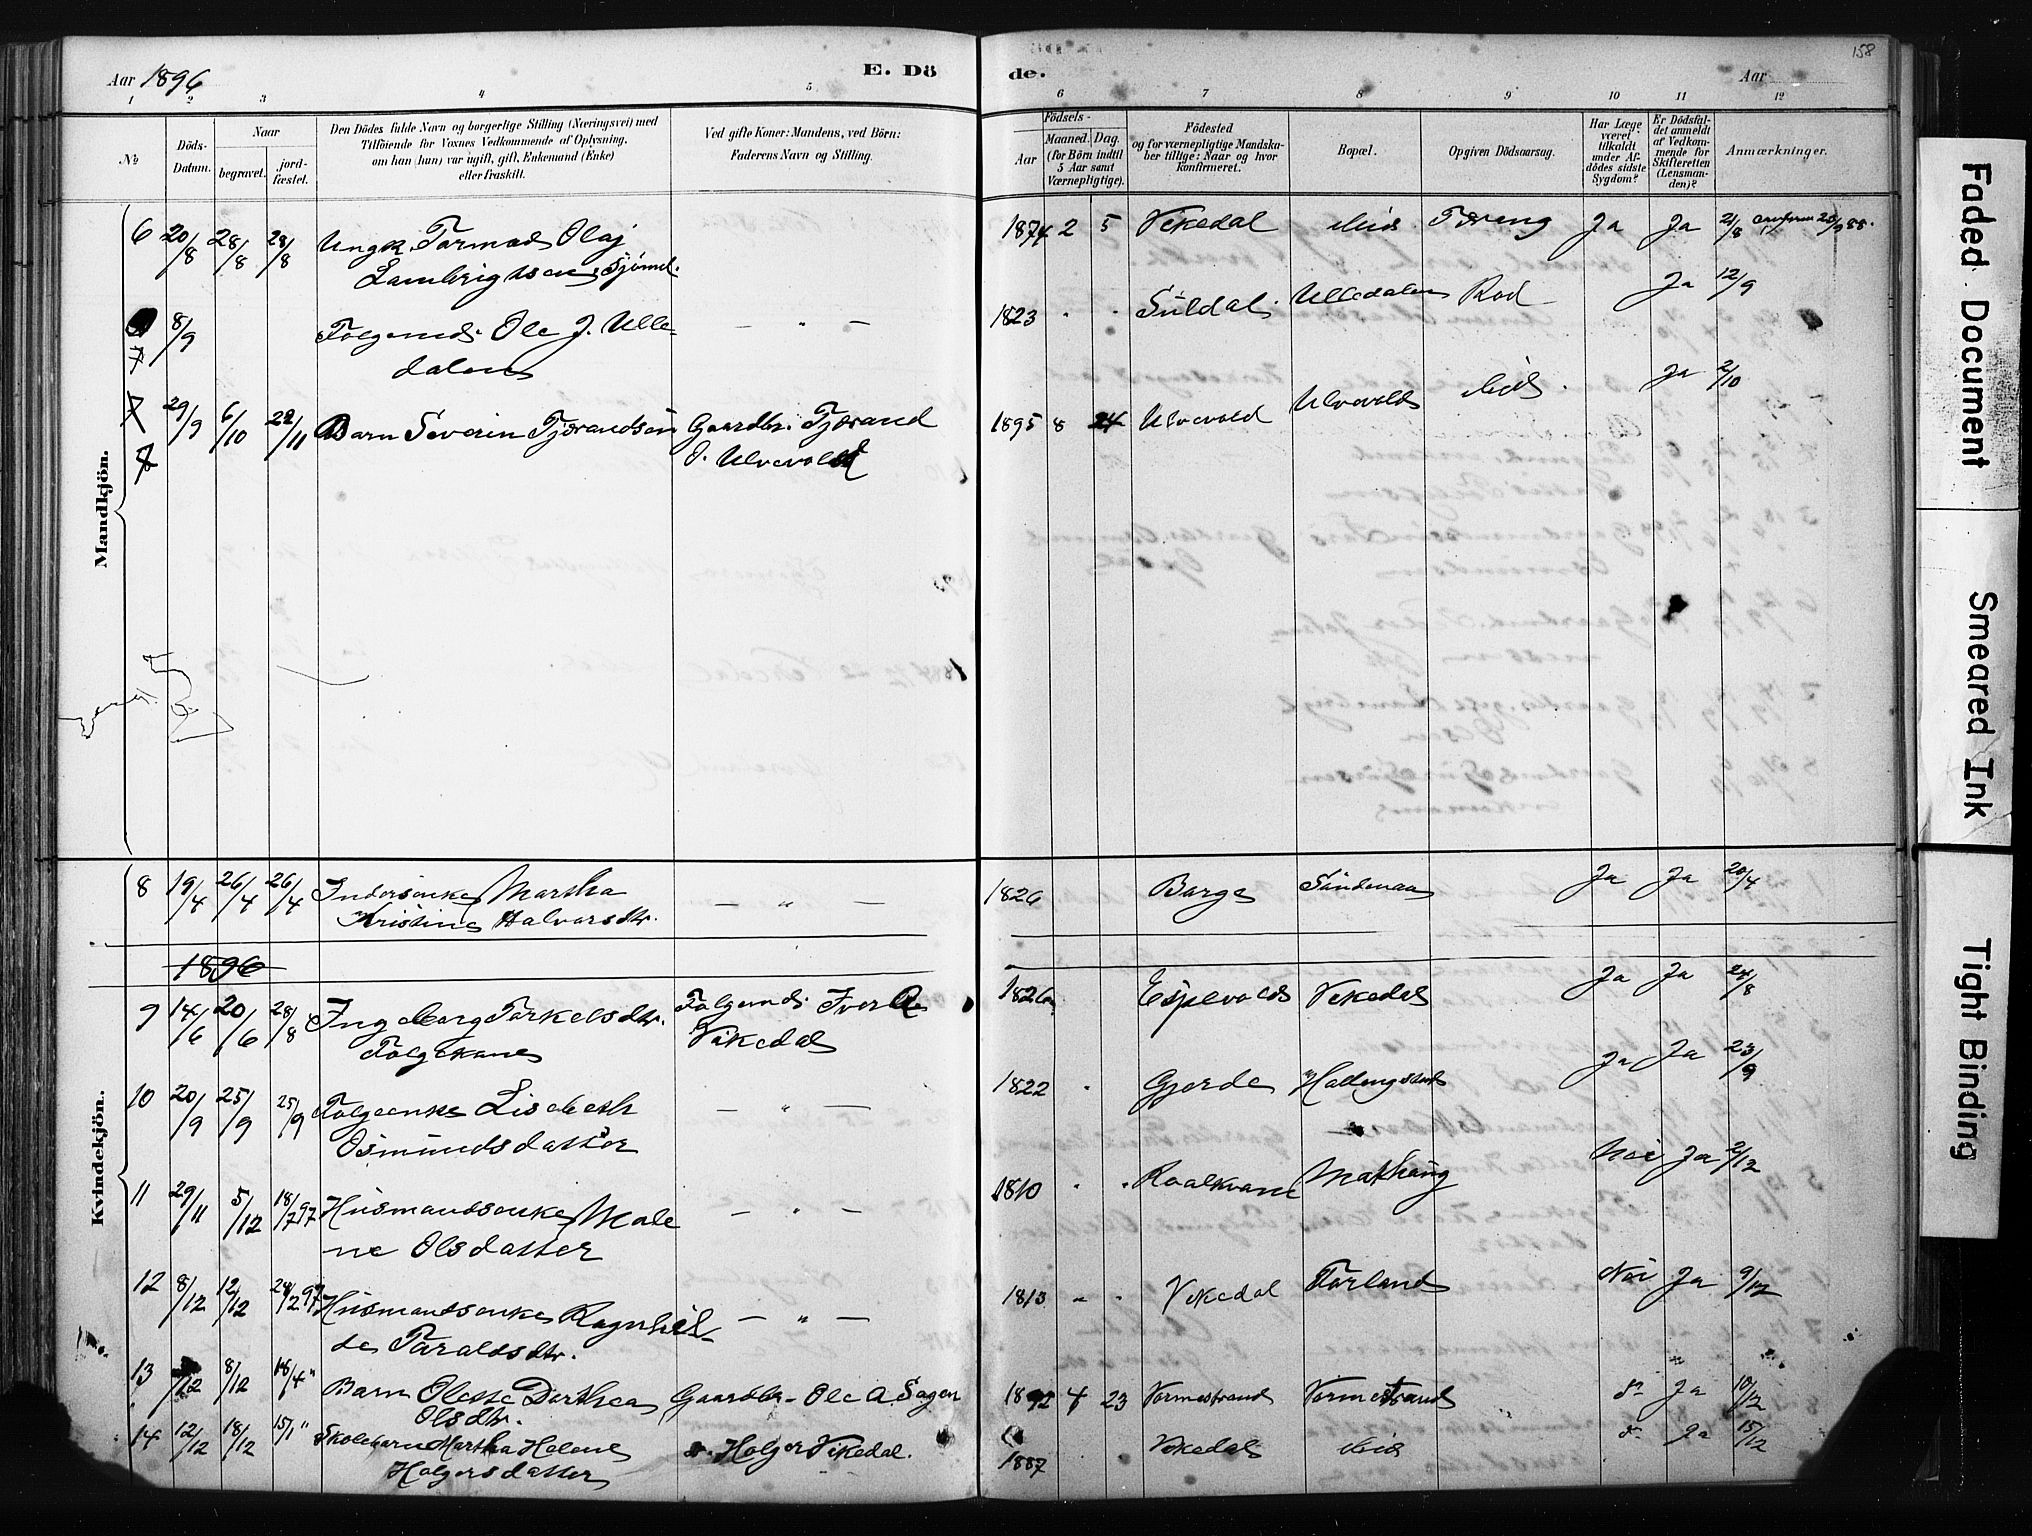 158
Aar 1896
E. Dö
de.
Aar
1 2 3 4 5 6 7 8 9 10 11 12
№
Döds-Datum.
Naar
begravet.
jord-fæstet.
Den Dödes fulde Navn og borgerlige Stilling (Næringsvei) med
Tilföiende for Voxnes Vedkommende af Oplysning,
om han (hun) var ugift, gift, Enkemand (Enke)
eller fraskilt.
Ved gifte Koner: Mandens, ved Börn:
Faderens Navn og Stilling.
Födsels-
Aar
Maaned. Dag.
(for Börn indtil
5 Aar samt
Værnepligtige).
Födested
og for værnepligtige Mandska-
ber tillige: Naar og hvor
konfirmeret.
Bopæl.
Opgiven Dödsaarsag.
Har Læge
været
tilkaldt
under Af-
dödes sidste
Sygdom?
Er Dödsfal-
det anmeldt
af Vedkom-
mende for
Skifteretten
(Lensman-
den)?
Anmærkninger.
Mandkjön.
6 20/8 28/8 28/8 Ungk. Tormod Olaj 1874 2 5 Vikedal Ja Ja 21/8
Lambrigtsen,
7 8/9 Folgemd. Ole J. Ulle- — " — 1823 " " Suldal Ulledalen Ja 12/9
dalen
29/9 6/10 22/11 Barn Severin Tjerandsen Gaardbr. Tjerand 1895 8 24 Ulvevold Ulvevold Ja 2/10
O. Ulvevold
Kvindekjön.
8 19/4 26/4 26/4 Martha — " — 1826 Borge Söndenaa Ja Ja 20/4
Kristine Halvorsdtr.
1896
9 14/6 20/6 28/8 Ingeborg Torkelsdtr. Folgemd. Iver 1826 Espevold Vikedal Ja Ja 24/8
Folgekone Vikedal
10 20/9 25/9 25/9 Folgeenke Lisebeth — " — 1822 " Gjerde Hallingstad Ja Ja 23/9
Osmundsdatter
11 29/11 5/12 18/7 97 Husmandsenke Male — " — 1810 " " Roalkvam Nei Ja 2/12
ne Olsdatter
12 8/12 12/12 Husmandsenke Ragnhil- — " — 1813 " " Vikedal Førland Nei Ja 9/12
de Taraldsdtr.
13 /12 8/12 18/4 " Barn Olette Dorthea Gaardbr. Ole A. Sagen 1892 4 23 Vormestrand Vormestrand Ja 10/12
Olsdtr.
14 12/12 18/12 15/1 " Skolebarn Martha Helene Holger Vikedal. 1887 Vikedal Ja 15/12
Holgersdatter
Faded Document
Smeared Ink
Tight Binding